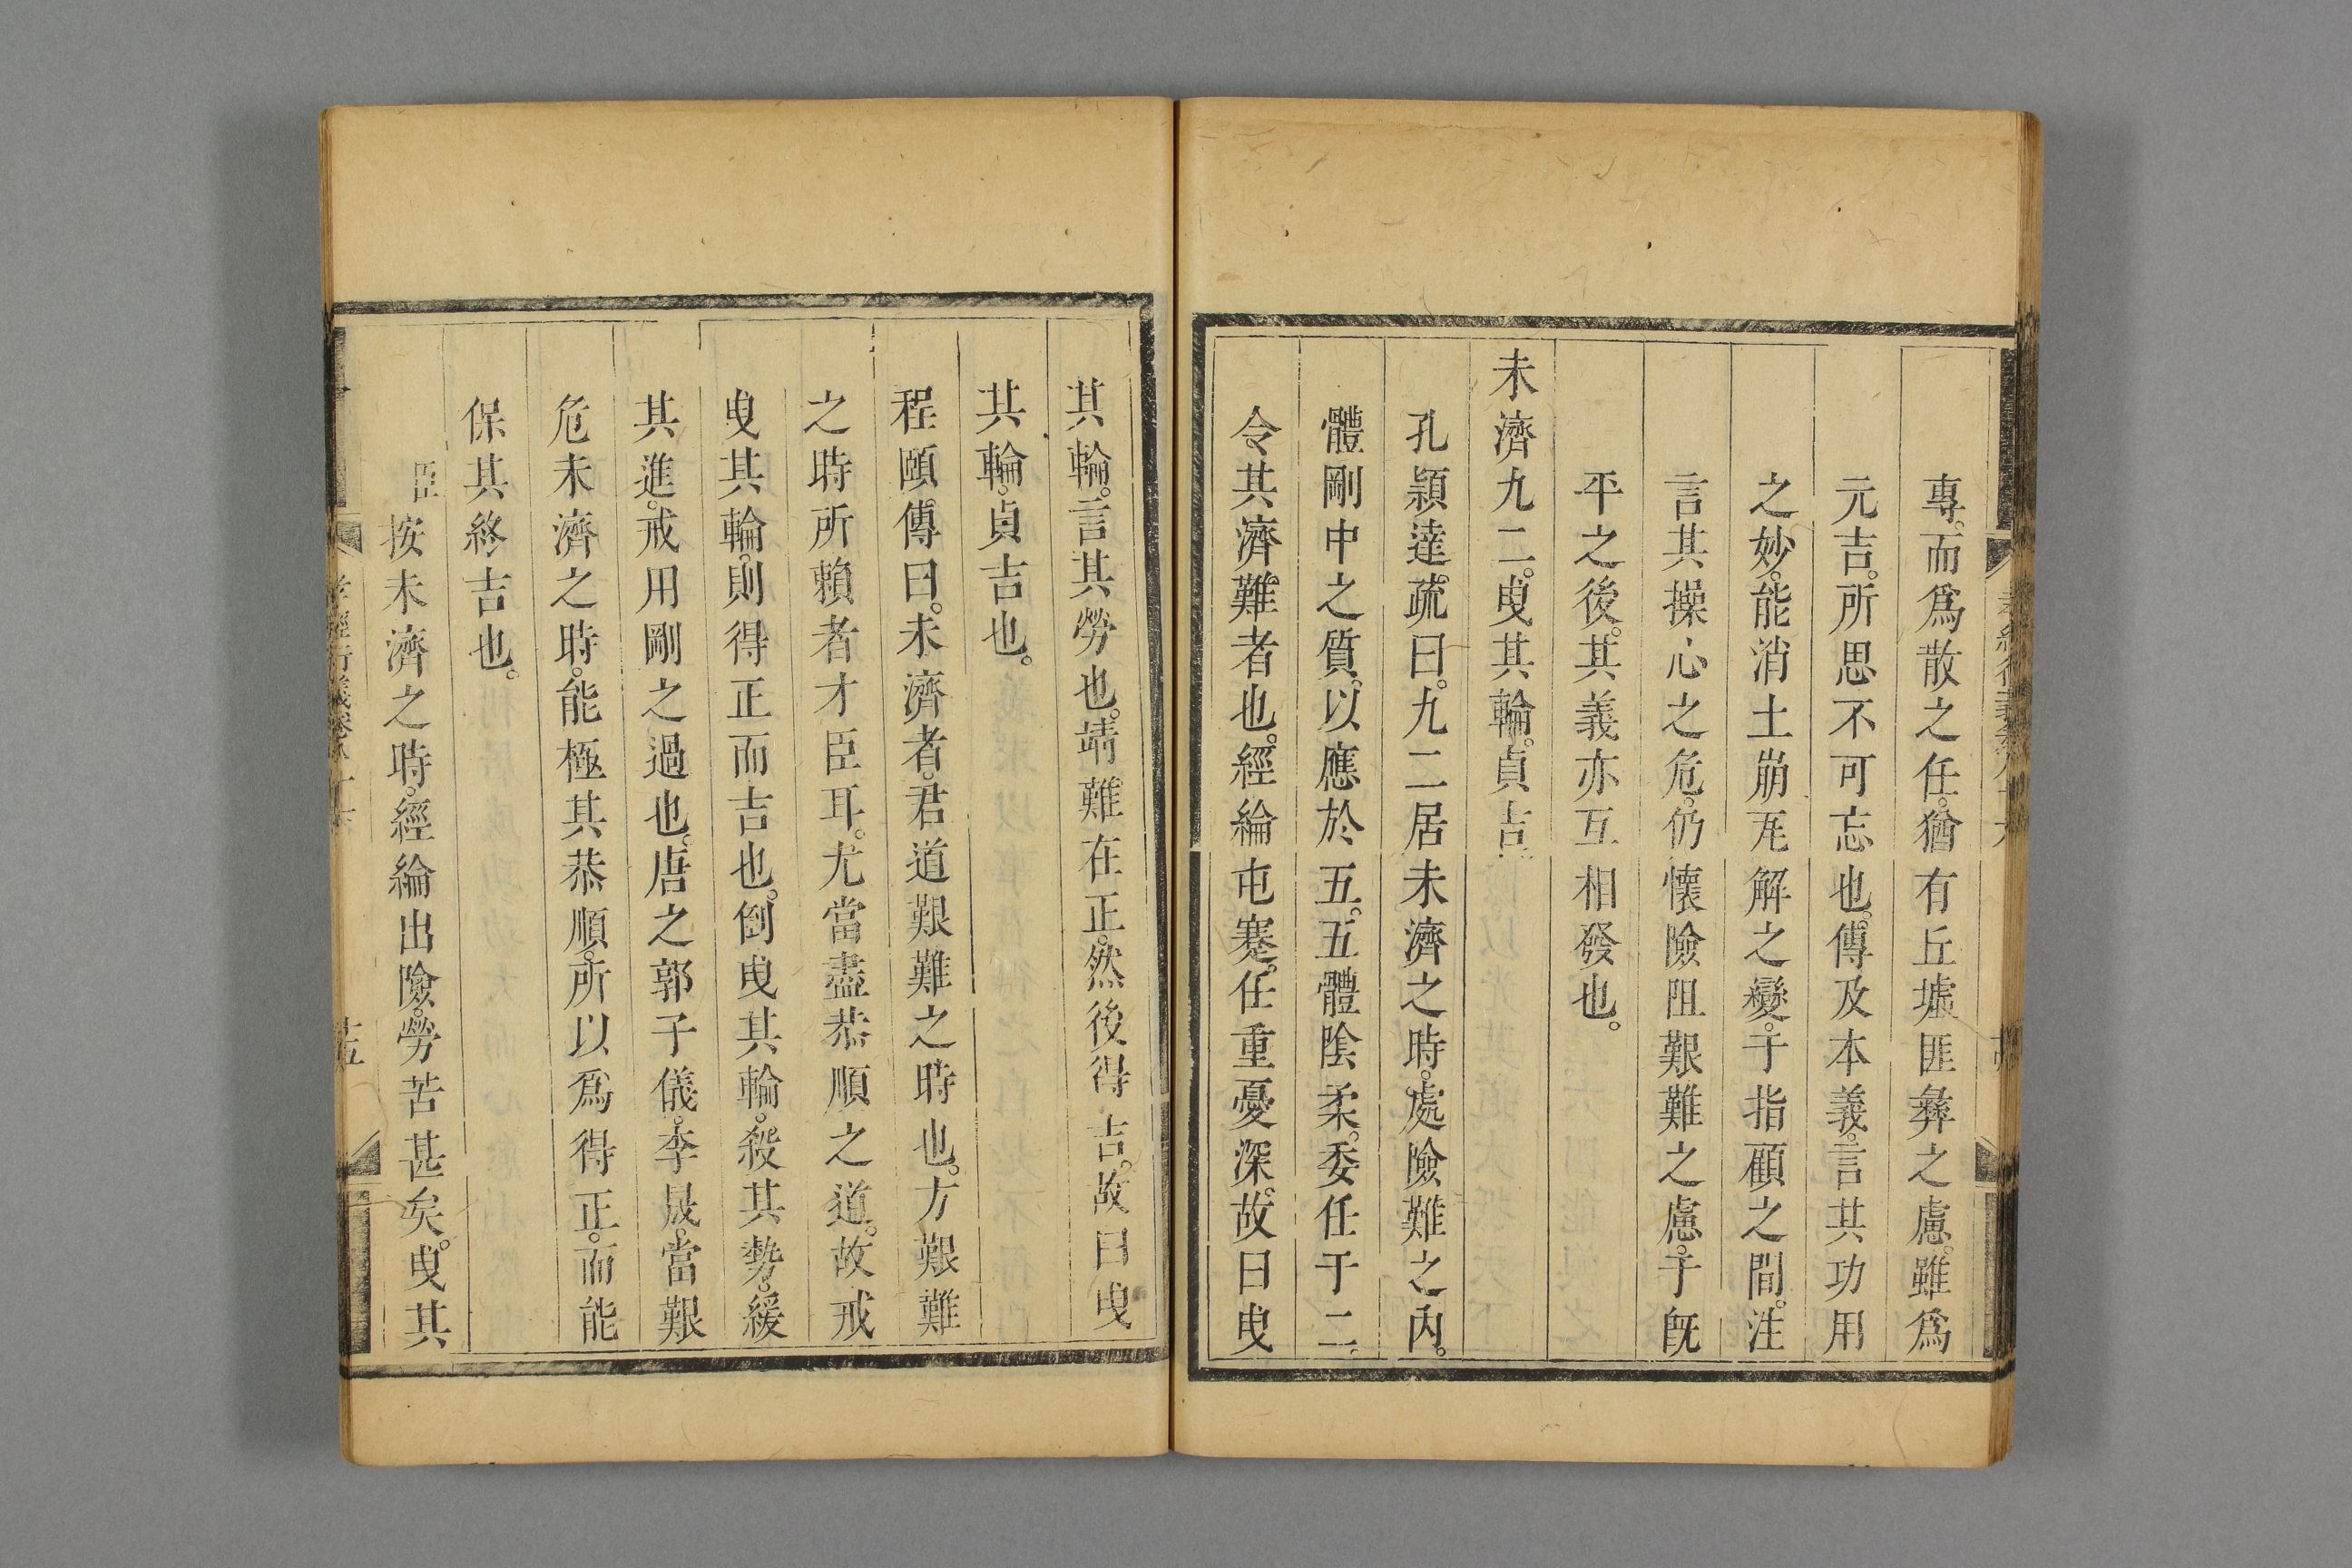 專。而爲散之任。猶有丘墟匪彝之慮。雖爲
元吉。所思不可忘也。傳及本義。言其功用
之妙。能消土崩瓦解之變。于指顧之間。注
言其操心之危。仍懷險阻艱難之慮。于旣
平之後。其義亦互相發也。
未濟九二。曳其輪。貞吉
孔穎達疏曰。九二居未濟之時。處險難之內。
體剛中之質。以應於五。五體陰柔。委任于二。
令其濟難者也。經綸屯蹇。任重憂深。故曰曳
其輪。言其勞也。靖難在正。然後得吉。故曰曳
其輪。貞吉也。
程頤傳曰。未濟者。君道艱難之時也。方艱難
之時所賴者才臣耳。尤當盡恭順之道。故戒
曳其輪。則得正而吉也。倒曳其輪。殺其勢。緩
其進。戒用剛之過也。唐之郭子儀。李晟。當艱
危未濟之時。能極其恭順。所以爲得正。而能
保其終吉也。
臣按未濟之時。經綸出險。勞苦甚矣。曳其
孝經衍義卷八十六